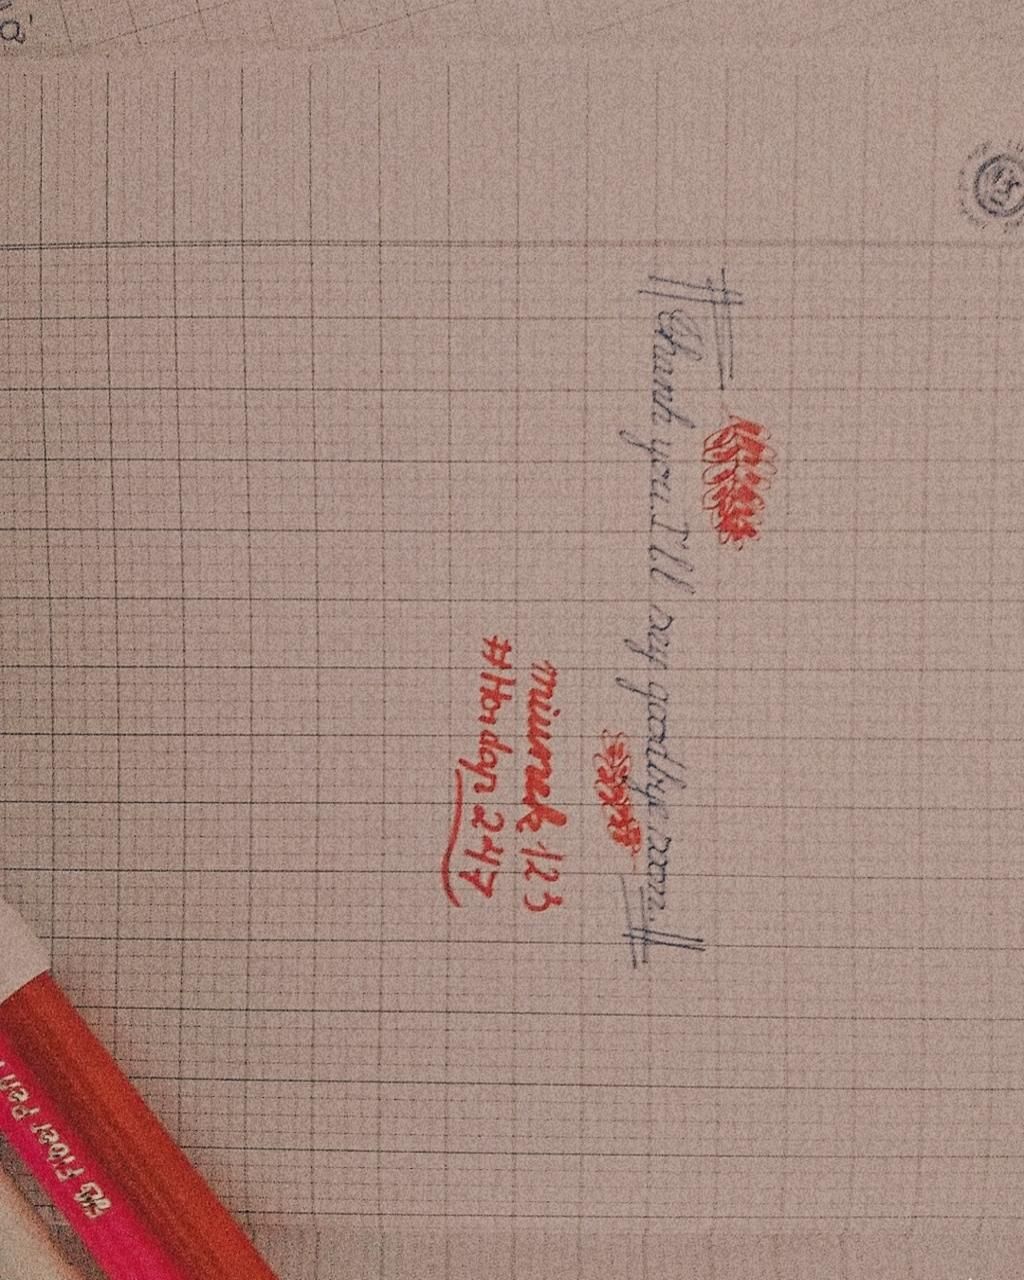 Thank you. I'll say goodbye soon.
miumek 123
#Hotday 247
Fiber Pen